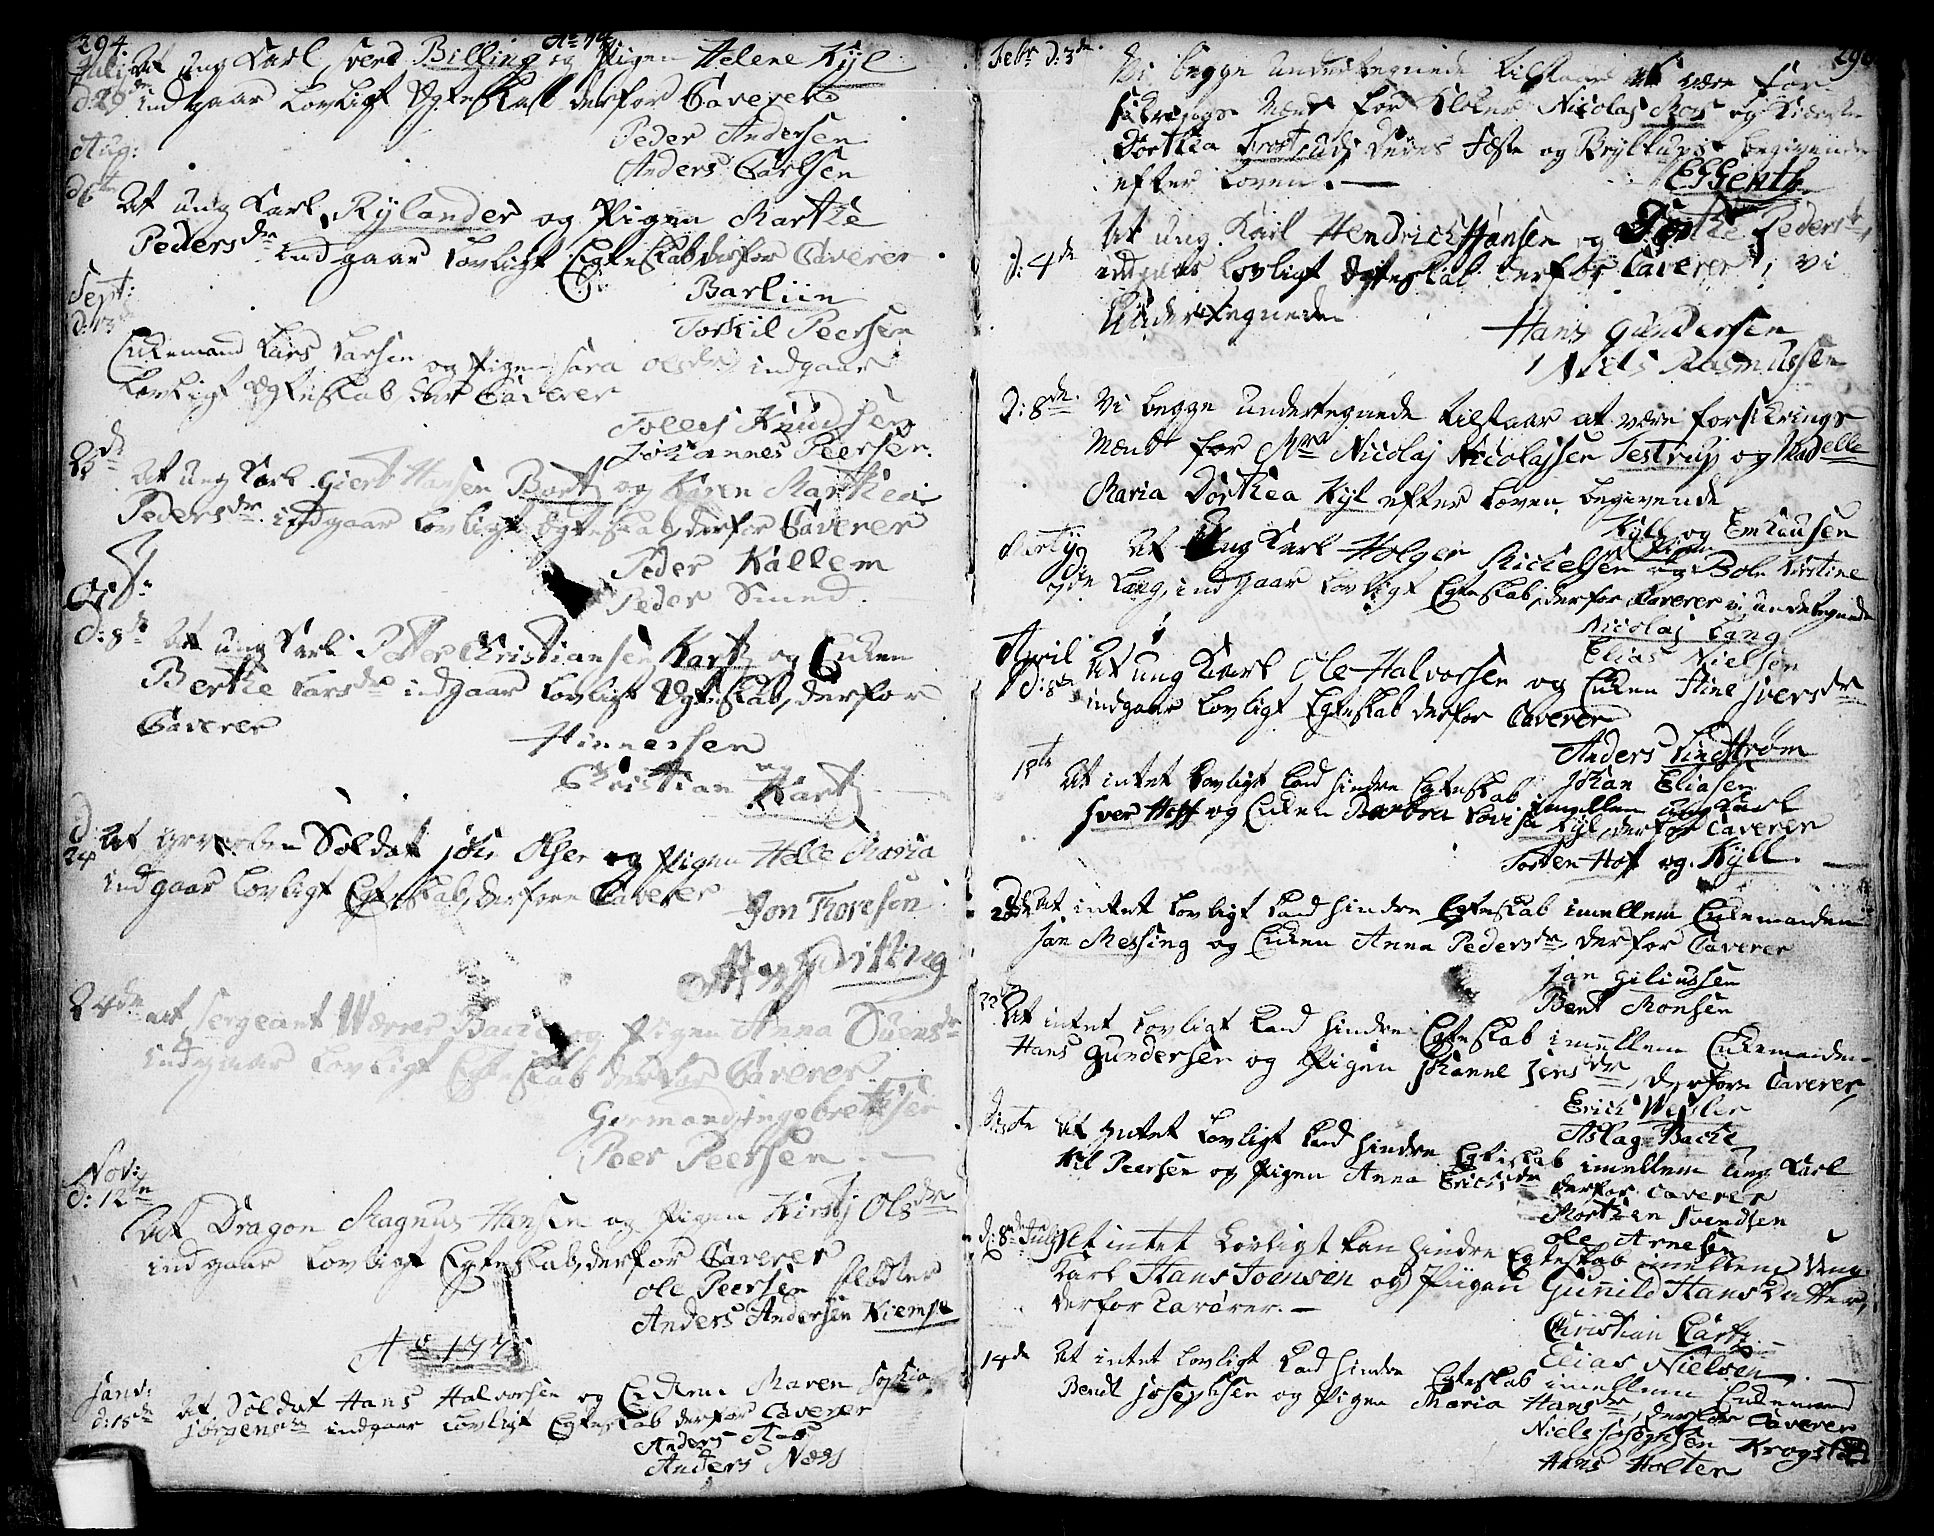 294.
Juli d: 29 At ung Karl, Sverd Billing og Pigen Helene Kyl
indgaar lovligt Egteskab derfor Caverer
Peder Andersen
Anders Carlsen
Aug:
d 6te At ung Karl Rylander og Pigen Marthe
Pedersdr indgaar lovligt Egteskab derfor Caverer
Barliin
Torkil Peersen
Sept:
d: 13
Enkemand Lars Larsen og Pigen Sara Olsdr indgaar
lovligt Egteskab der Caverer
Tolleis Knudsen
Johannes Peersen.
At ung Karl Giert Hansen Bart og Karen Marthea
Pedersdr indgaar lovligt Egteskab derfor Caverer
Peder Kallem
Peder Smed.
d: 8de At ung Karl Petter Christiansen Kartz og Enken
Berthe Larsdr indgaar lovligt Egteskab, derfor
Caverer
Hinnersen
Christian Kartz
d: 24 At Soldat Johs Olsen og Pigen Helle Maria
indgaar lovligt Egteskab, derfore Caverer
Jon Thoresen
24de at Sergeant Werner Bache og Pigen Anna Svensdr
indgaar lovligt Egteskab derfor Caverer
Germand ingebretsen
Peer Peersen.
Nov:
d: 12te
At Dragon Magnus Hansen og Pigen Kirsti Olsdr
indgaar lovligt Egteskab, derfor Caverer
Ole Peersen Flødter
Anders Andersen Kiemse
Ao 177
Janv:
d: 18de At Soldat Hans Halvorsen og Enken Maren Sophia
Jørgensen indgaar lovligt Egteskab derfor Caverer
Anders Aas
Anders Næss
Febr d: 3de Vi begge undertegnede tilstaar at være for-
sikrings Mænd for Klokr Nicolas Moss og Kieresten
Dorthea Frostrud, deres Feste og Bryllups begivende
efter Loven.
d: 4de At ung Karl Hendrich Hansen og Dorthe Pedersdr,
indgaar lovligt Egteskab derfor Caverer, vi
Undertegnede
Hans Gundersen
Niels Rasmussen
D: 8de. Vi begge undertegnede tilstaar at være forsikrings
Mænd for Mr Nicolaj Nicolajsen Testrup og Madelle
Maria Dorthea Kyl efter Loven begivende
Kyll og Em Knusen
Marty
At Ung Karl Holger Mickelsen og Pigen Bole Kirstine
Lang, indgaar lovligt Egteskab, derfor Caverer vi undertegnede
Nicolaj Lang
Elias Nielsen
April
d: 8de At ung Karl Ole Halvorsen og Enken Stine Iversdr
indgaar lovligt Egteskab derfor Caverer
Anders Lindstrøm
Johan Eliasen
18te At intet lovligt kand hindre Egteskab imellem ung Karl
Iver Hoff og Enken Barbra Lovisa Kyl, derfor Caverer
Torten Hof og. Kyll.
At intet lovligt kand hindre Egteskab imellem Enkemanden
Jan Messing og Enken Anna Pedersdr, derfor Caverer
Jan Giliussen
Bent Monsen
22 At intet lovligt kand hindre Egteskab imellem Enkemanden
Hans Gundersen og Pigen Johanne Jensdr, derfore Caverer,
Erich Wesler
Aslag Bache
At intet lovligt kand hindre Egteskab imellem Ung Karl
Nil Peersen og Pigen Anna Erichsdr derfor Caverer
Morthen Svendsen
Ole Arnesen
d: 8de Julij At intet Lovligt kan hindre Egteskab imellem Ung
Karl Hans Joensen og Piigen Gunild Hans Datter,
derfor Caverer.
Christian Cartz
Elias Nielsen.
14de At intet lovligt kand hindre Egteskab imellem Enkemand
Bendt Josephsen og Pigen Maria Hansdr, derfor Caverer
Niels Josephsen Krogsta
Hans Holter